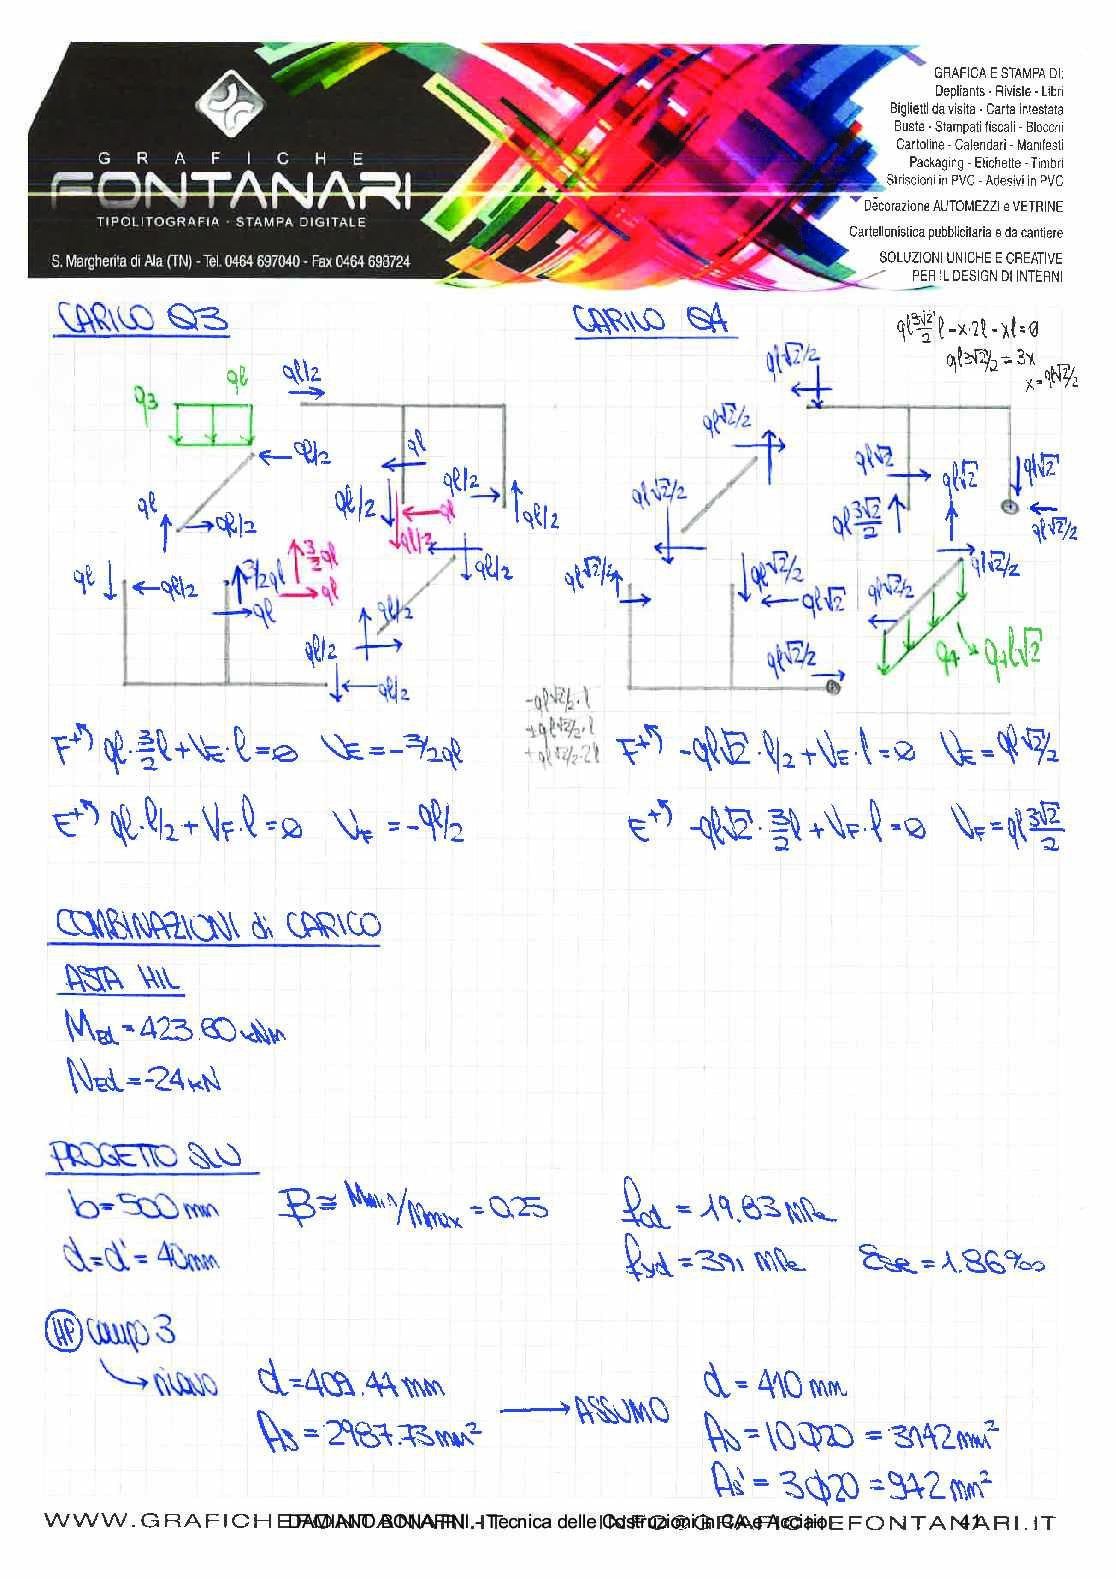 GRAFICHE
FONTANARI
TIPOLITOGRAFIA · STAMPA DIGITALE
S. Margherita di Ala (TN) - Tel. 0464 697040 - Fax 0464 698724
GRAFICA E STAMPA DI:
Depliants - Riviste - Libri
Biglietti da visita - Carta intestata
Buste - Stampati fiscali - Blocchi
Cartoline - Calendari - Manifesti
Packaging - Etichette - Timbri
Striscioni in PVC - Adesivi in PVC
Decorazione AUTOMEZZI e VETRINE
Cartellonistica pubblicitaria e da cantiere
SOLUZIONI UNICHE E CREATIVE
PER IL DESIGN DI INTERNI
CARICO Q3
q3
ql
ql/2
ql/2
ql
ql
ql/2
ql/2
ql/2
ql/2
ql
ql/2
ql
ql/2
3/2 ql
3/2 ql
ql
ql
ql/2
ql/2
ql/2
ql/2
F+) ql·3/2 l+VE·l=0 VE=-3/2 ql
E+) ql·l/2+VF·l=0 VF=-ql/2
CARICO Q4
ql 3√2/2 l-x·2l-xl=0
ql 3√2/2=3x
x=ql√2/2
ql√2/2
ql√2/2
ql√2/2
ql√2
ql 3√2/2
ql√2
ql√2
ql√2/2
ql√2/2
ql√2/2
ql√2
ql√2/2
ql√2/2
ql√2/2
q4
q4l√2
-ql√2/2·l
+ql√2/2·l
+ql√2/2·2l
F+) -ql√2·l/2+VE·l=0 VE=ql√2/2
E+) -ql√2·3/2 l+VF·l=0 VF=ql 3√2/2
COMBINAZIONI di CARICO
ASTA HIL
MEd=423.60 kNm
NEd=-24 kN
PROGETTO SLU
b=500 mm B≅Mmin/Mmax=0.25 fcd=19.83 MPa
d=d'=40mm fyd=391 MPa εse=1.86‰
HP campo 3
→ ricavo d=409.44 mm → ASSUMO d=410 mm
As=2987.73mm² As=10Φ20=3142mm²
As'=3Φ20=942mm²
WWW.GRAFICHEFONTANARI.IT
DAMIANO BONAFINI - Tecnica delle Costruzioni in CA e Acciaio 41